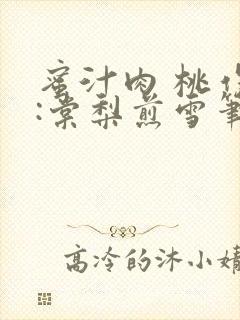 蜜汁肉桃作
:棠梨煎雪筆
高冷的沐小婧